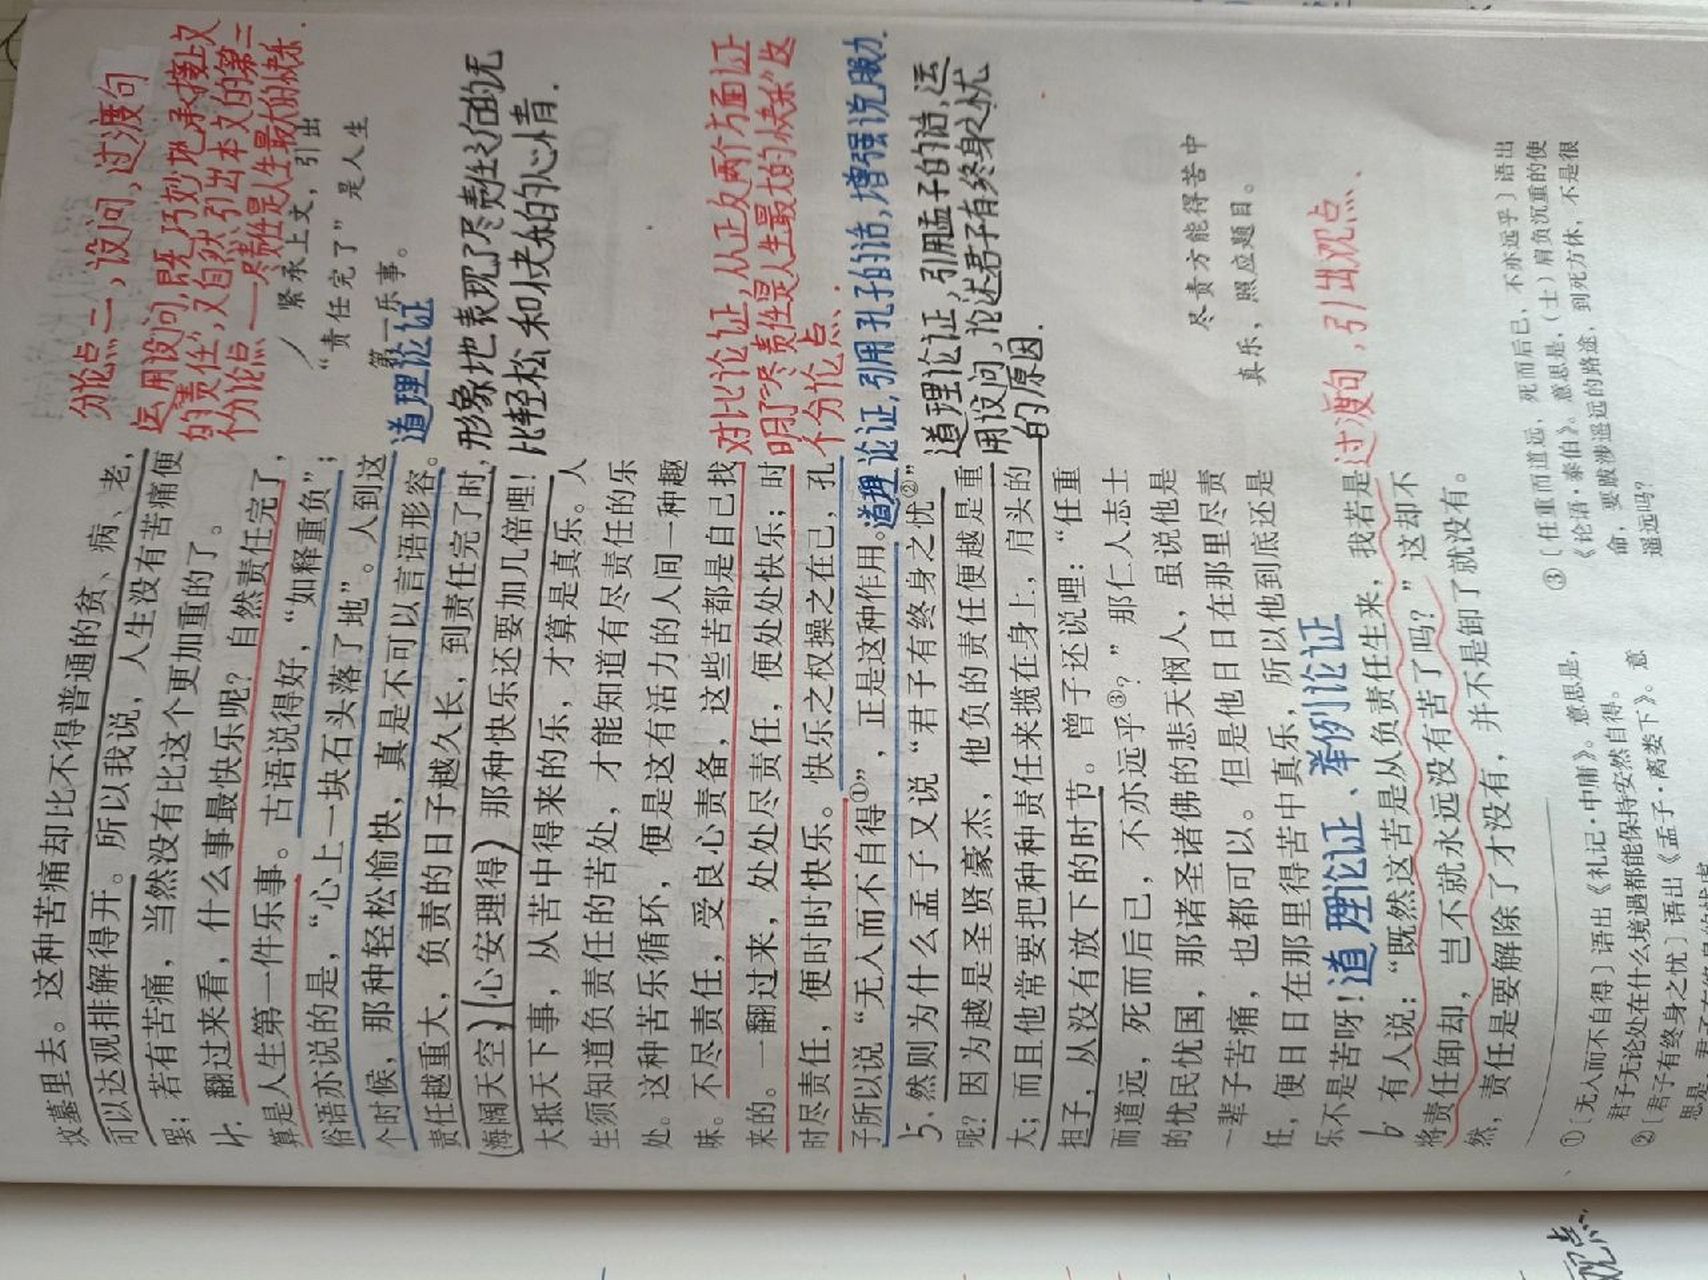 坟墓里去。这种苦痛却比不得普通的贫、病、老，
可以达观排解得开。所以我说，人生没有苦痛便
罢；若有苦痛，当然没有比这个更加重的了。
4.翻过来看，什么事最快乐呢？自然责任完了，
算是人生第一件乐事。古语说得好，“如释重负”；
俗语亦说的是，“心上一块石头落了地”。人到这
个时候，那种轻松愉快，真是不可以言语形容。
责任越重大，负责的日子越久长，到责任完了时，
(海阔天空，)(心安理得)那种快乐还要加几倍哩！
大抵天下事，从苦中得来的乐，才算是真乐。人
生须知道负责任的苦处，才能知道有尽责任的乐
处。这种苦乐循环，便是这有活力的人间一种趣
味。不尽责任，受良心责备，这些苦都是自己找
来的。一翻过来，处处尽责任，便处处快乐；时
时尽责任，便时时快乐。快乐之权操之在己，孔
子所以说“无人而不自得①”，正是这种作用。
5.然则为什么孟子又说“君子有终身之忧②”
呢？因为越是圣贤豪杰，他负的责任便越是重
大；而且他常要把种种责任来揽在身上，肩头的
担子，从没有放下的时节。曾子还说哩：“任重
而道远，死而后已，不亦远乎③？”那仁人志士
的忧民忧国，那诸圣诸佛的悲天悯人，虽说他是
一辈子苦痛，也都可以。但是他日日在那里尽责
任，便日日在那里得苦中真乐，所以他到底还是
乐不是苦呀！道理论证、举例论证
6有人说：“既然这苦是从负责任生来，我若是
将责任卸却，岂不就永远没有苦了吗？”这却不
然，责任是要解除了才没有，并不是卸了就没有。
分论点二，设问，过渡句
运用设问，既巧妙地承接上文
的责任，又自然引出本文的第二
个分论点——尽责任是人生最大的快乐.
紧承上文，引出
“责任完了”是人生
第一乐事。
道理论证
形象地表现了尽责任之后的无
比轻松和愉快的心情.
对比论证，从正反两个方面证
明了“尽责任是人生最大的快乐”这
个分论点.
道理论证，引用孔子的话，增强说服力.
道理论证，引用孟子的话，运
用设问，论述君子有终身之忧
的原因.
尽责方能得苦中
真乐，照应题目。
过渡句，引出观点、
①〔无人而不自得〕语出《礼记·中庸》。意思是，
君子无论处在什么境遇都能保持安然自得。
②〔君子有终身之忧〕语出《孟子·离娄下》。意
③〔任重而道远，死而后已，不亦远乎〕语出
《论语·泰伯》。意思是，（士）肩负沉重的使
命，要跋涉遥远的路途，到死方休，不是很
遥远吗？
观点